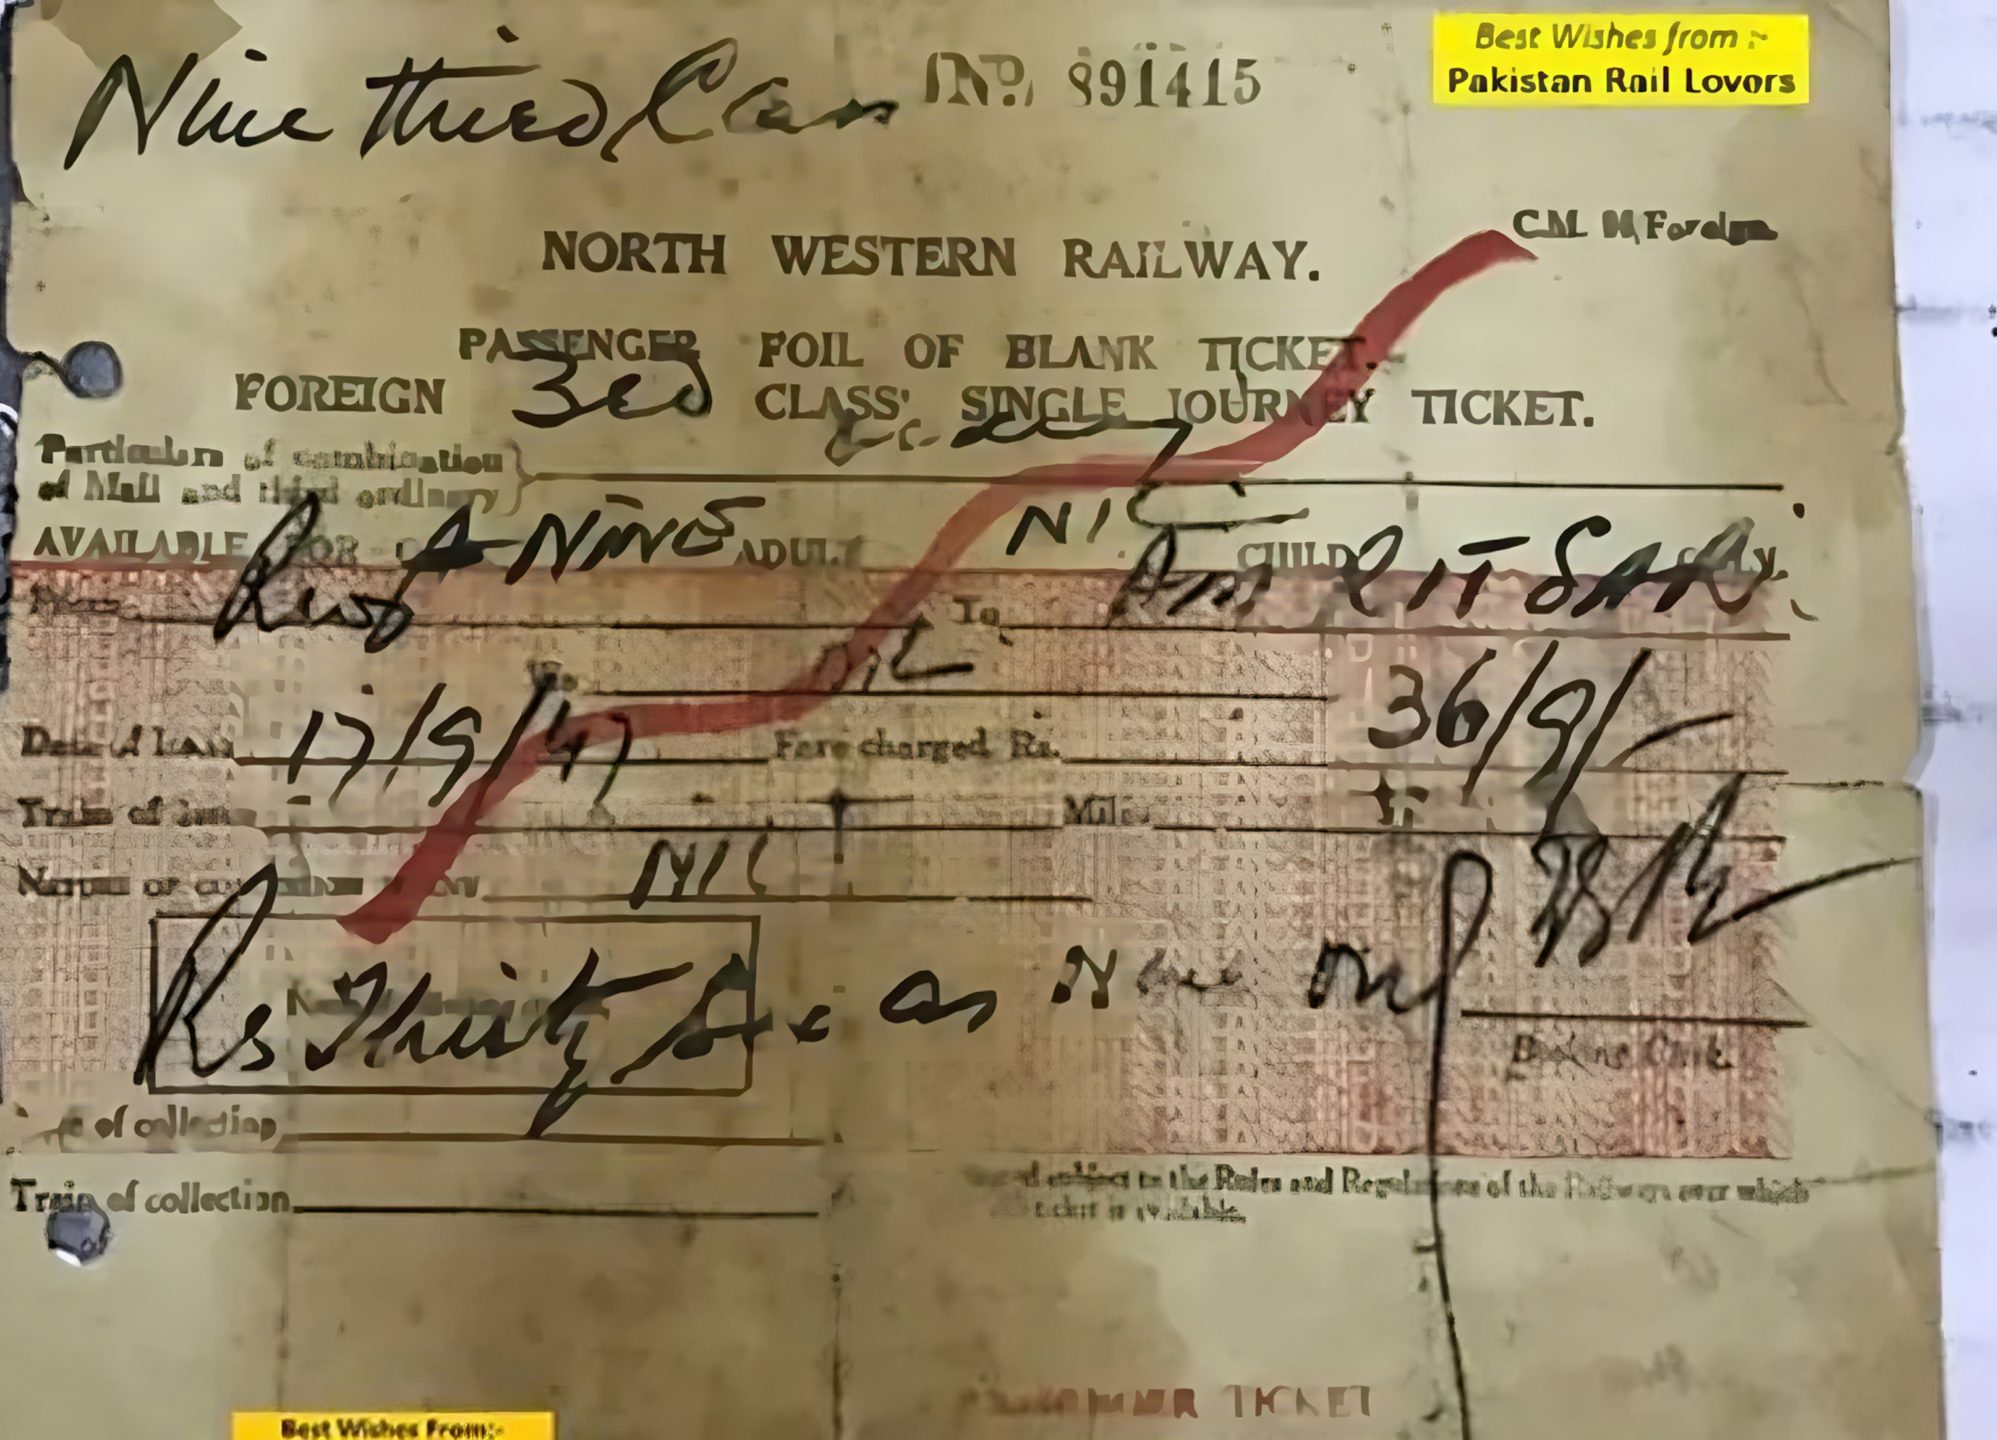 Nine third Class No. 891415
Best Wishes from :-
Pakistan Rail Lovors
NORTH WESTERN RAILWAY.
PASSENGER FOIL OF BLANK TICKET.
FOREIGN 3rd CLASS SINGLE JOURNEY TICKET.
Particulars of combination
of Mail and third ordinary
AVAILABLE FOR NINE ADULT NIL CHILD
To AMRITSAR
NIL
17/9/47 Fare charged Rs. 36/9/-
Train of Miles
NIL
Rs Thirty Six As Nine only
Booking Clerk
of collection
Train of collection
subject to the Rules and Regulations of the Railways over which
ticket is available.
TICKET
Best Wishes From:-